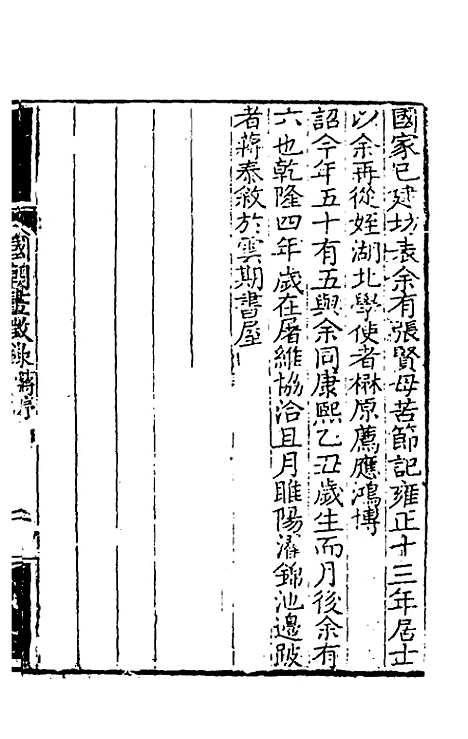 國家已建坊表余有張賢母苦節記雍正十三年居士
以余再從姪湖北學使者楙原薦應鴻博
詔今年五十有五與余同康熙乙丑歲生而月後余有
六也乾隆四年歲在屠維協洽且月睢陽濬錦池邊跛
者蔣泰敘於雲期書屋
國朝畫徵錄 蔣序 二